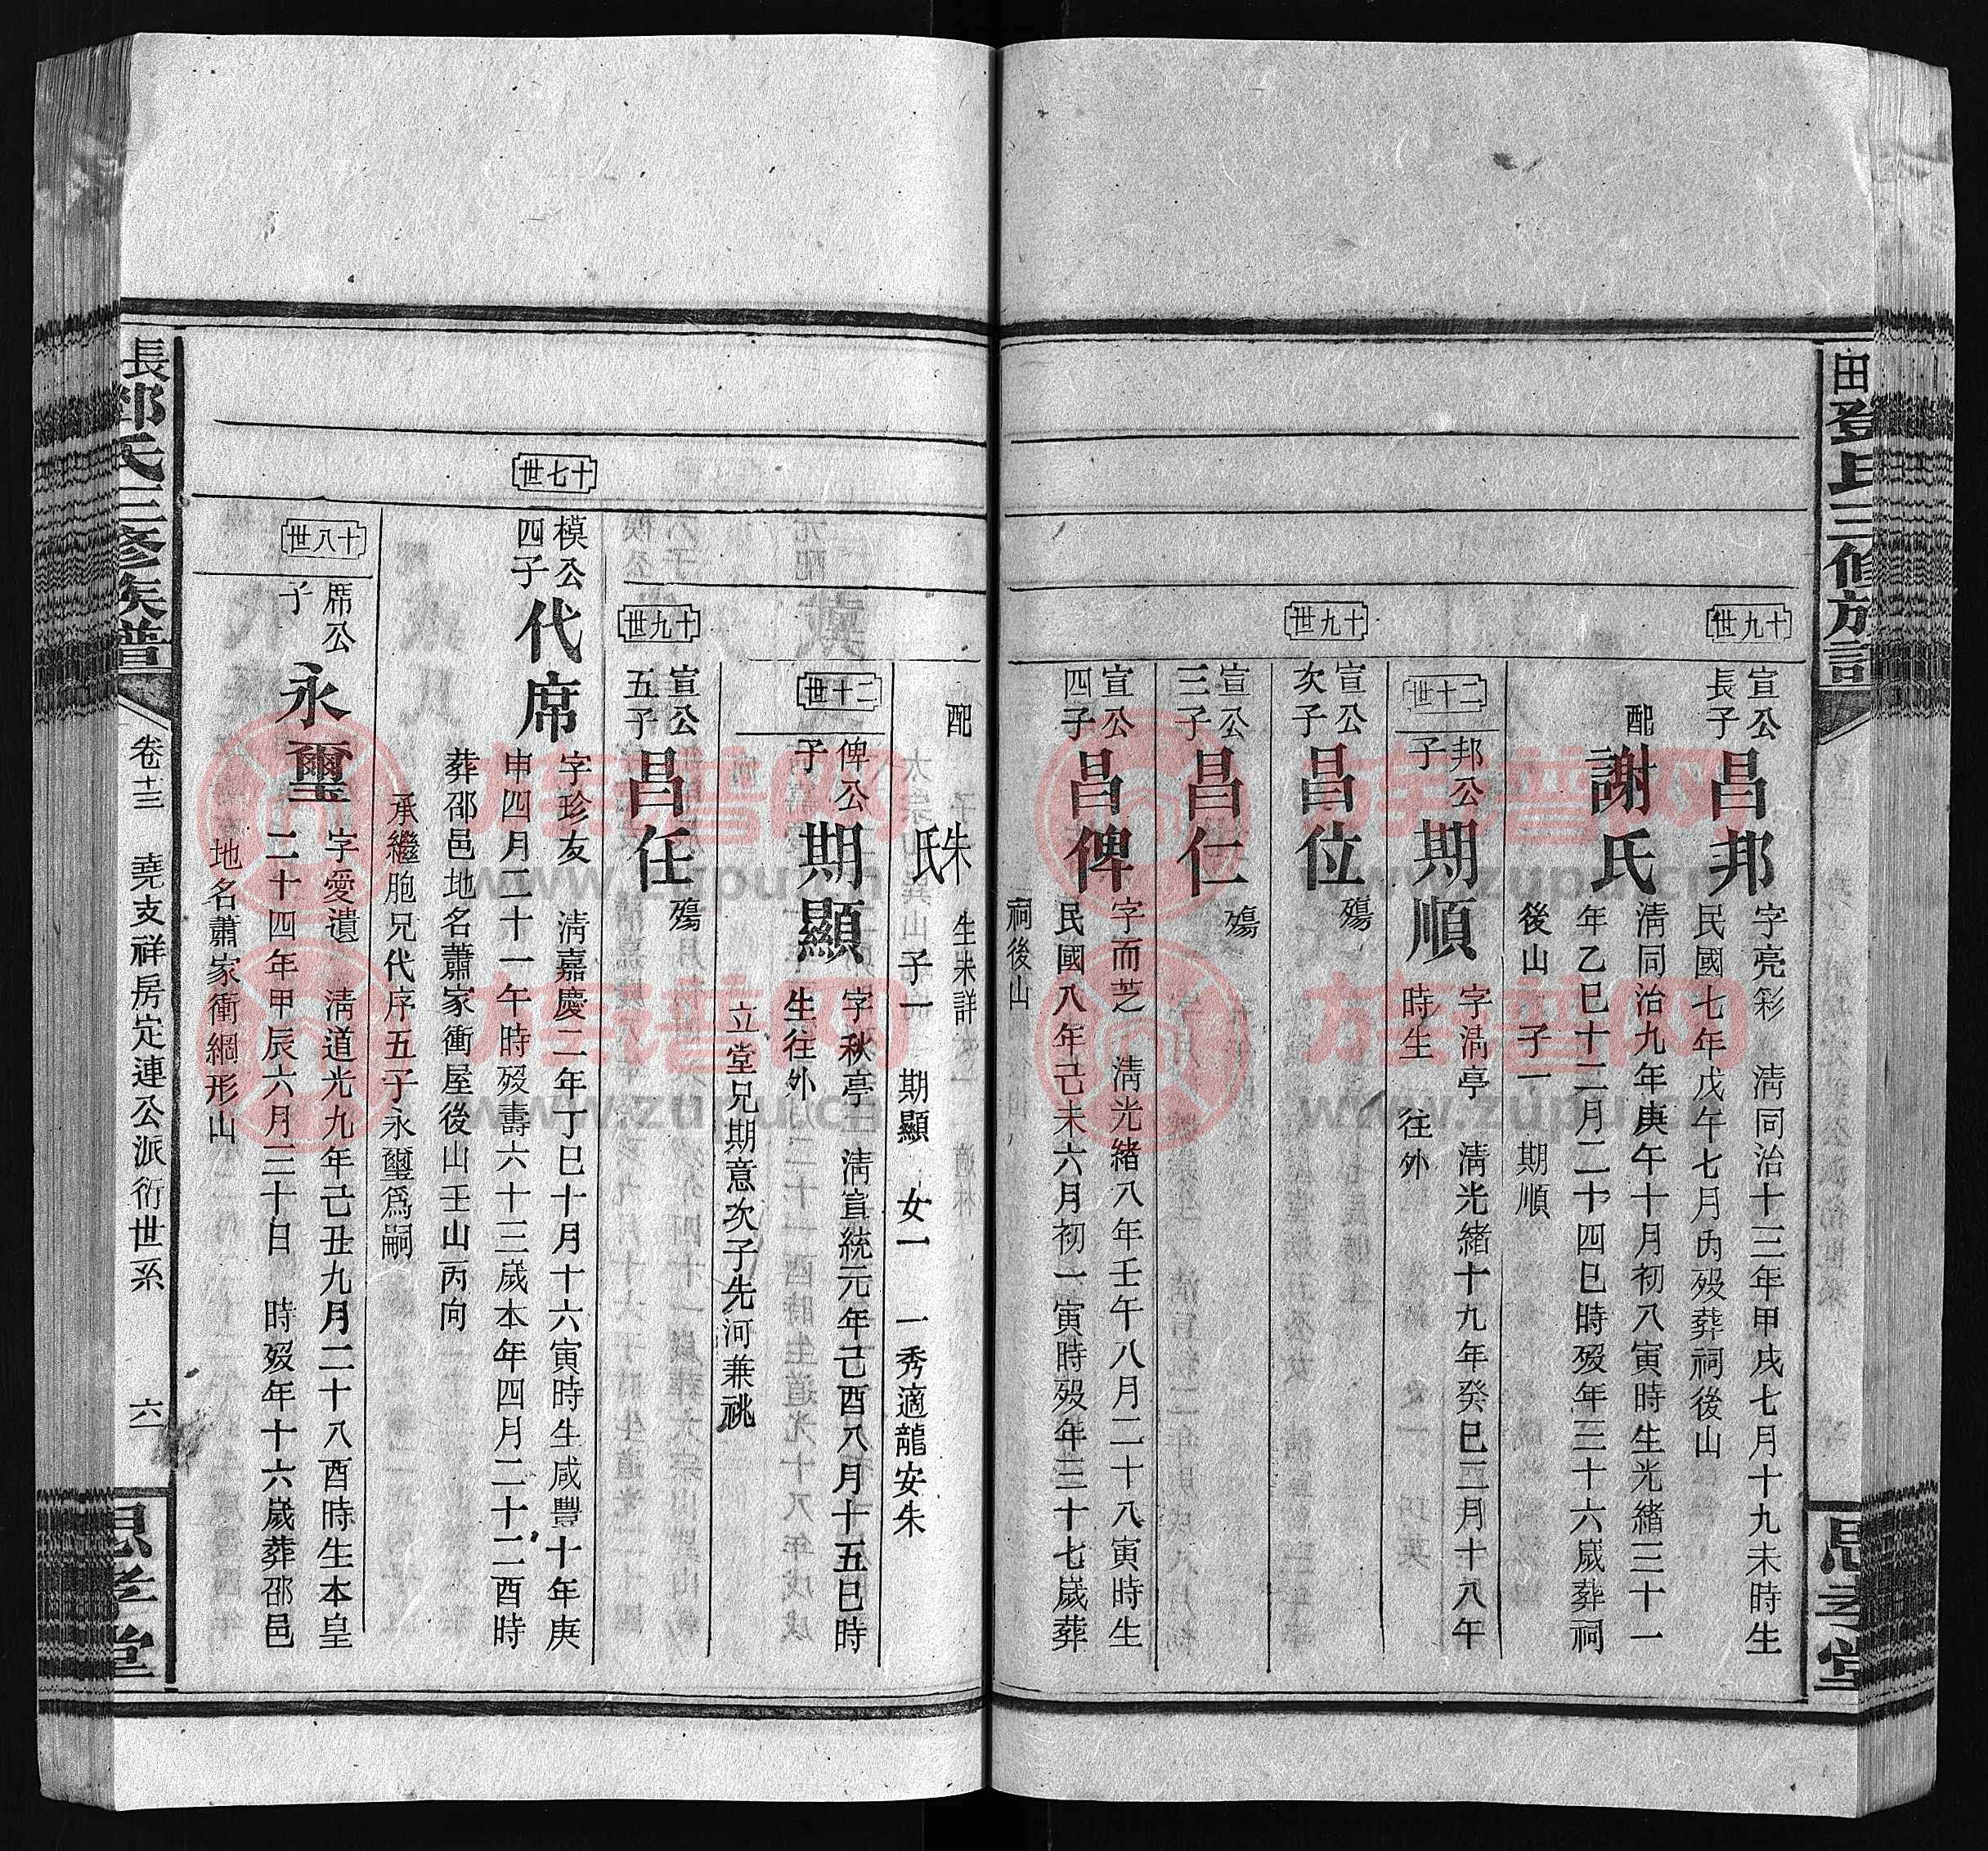 田鄧氏三修族譜
思孝堂
十九世
宣公
長子
昌邦
字亮彩　清同治十三年甲戌七月十九未時生
民國七年戊午七月內歿葬祠後山
配
謝氏
清同治九年庚午十月初八寅時生光緒三十一
年乙巳十二月二十四巳時歿年三十六歲葬祠
後山　子一　期順
二十世
邦公
子
期順
字湯亭　清光緒十九年癸巳三月十八年
時生　往外
十九世
宣公
次子
昌位
殤
宣公
三子
昌仁
殤
宣公
四子
昌俾
字而芝　清光緒八年壬午八月二十八寅時生
民國八年己未六月初一寅時歿年三十七歲葬
祠後山
配
朱氏
生未詳
子一　期顯　女一　一秀適龍安朱
二十世
俾公
子
期顯
字秋亭　清宣統元年己酉八月十五巳時
生往外
立堂兄期意次子先河兼祧
十九世
宣公
五子
昌任
殤
十七世
模公
四子
代席
字珍友　清嘉慶二年丁巳十月十六寅時生咸豐十年庚
申四月二十一午時歿壽六十三歲本年四月二十二酉時
葬邵邑地名蕭家衝屋後山壬山丙向
承繼胞兄代序五子永璽爲嗣
十八世
席公
子
永璽
字愛遺　清道光九年己丑九月二十八酉時生本皇
二十四年甲辰六月三十日　時歿年十六歲葬邵邑
地名蕭家衝綱形山
長鄧氏三修族譜
卷十三　堯支祥房定連公派衍世系　六一
思孝堂
族譜网
www.zupu.cn
族譜网
www.zupu.cn
族譜网
www.zupu.cn
族譜网
www.zupu.cn